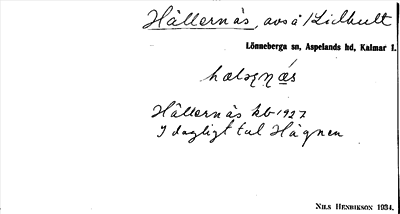 Hällernäs, avs å Lidhult
Lönneberga sn, Aspelands hd, Kalmar l.
Hällernäs kb 1927
I dagligt tal Hägnen
Nils Henrikson 1934.